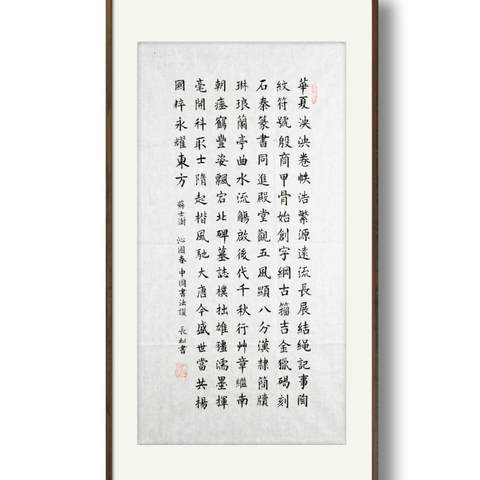 華夏泱泱卷帙浩繁源遠流長展結繩記事陶
紋符號殷商甲骨始創字綱古籀吉金獵碣刻
石秦篆書同進殿堂觀五風顯八分漢隸簡牘
琳琅蘭亭曲水流觴啟後代千秋行艸章繼南
朝瘞鶴豐姿飄宕北碑墓誌樸拙雄彊濡墨揮
毫開科取士隋起楷風馳大唐今盛世當共揚
國粹永耀東方 蘇士澍 沁園春中國書法讚 長松書